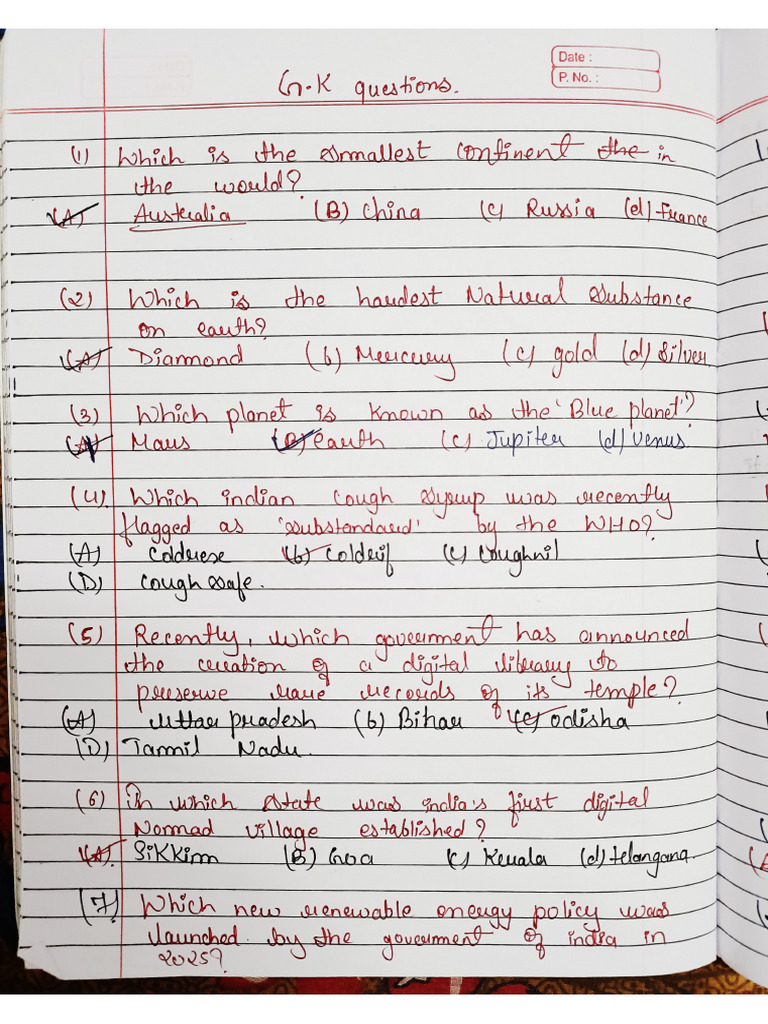 Date :
P. No. :
G.K questions.
(1) Which is the smallest continent the in
the world?
(A) Australia (B) China (C) Russia (d) France
(2) Which is the hardest Natural substance
on earth?
(A) Diamond (b) Mercury (c) gold (d) Silver.
(3) Which planet is known as the 'Blue planet'?
(A) Mars (B) earth (c) Jupiter (d) venus.
(4). Which indian cough syrup was recently
flagged as 'substandard' by the WHO?
(A) (b) Coldrif (c) Coughnil
(D) Cough safe.
(5) Recently, which government has announced
the creation of a digital library to
preserve rare records of its temple?
(A) uttar pradesh (b) Bihar (c) odisha
(D) Tamil Nadu.
(6) In which state was india's first digital
Nomad village established?
(A). Sikkim (B) Goa (c) Kerala (d) telangana.
(7) Which new renewable energy policy was
launched by the government of india in
2025?